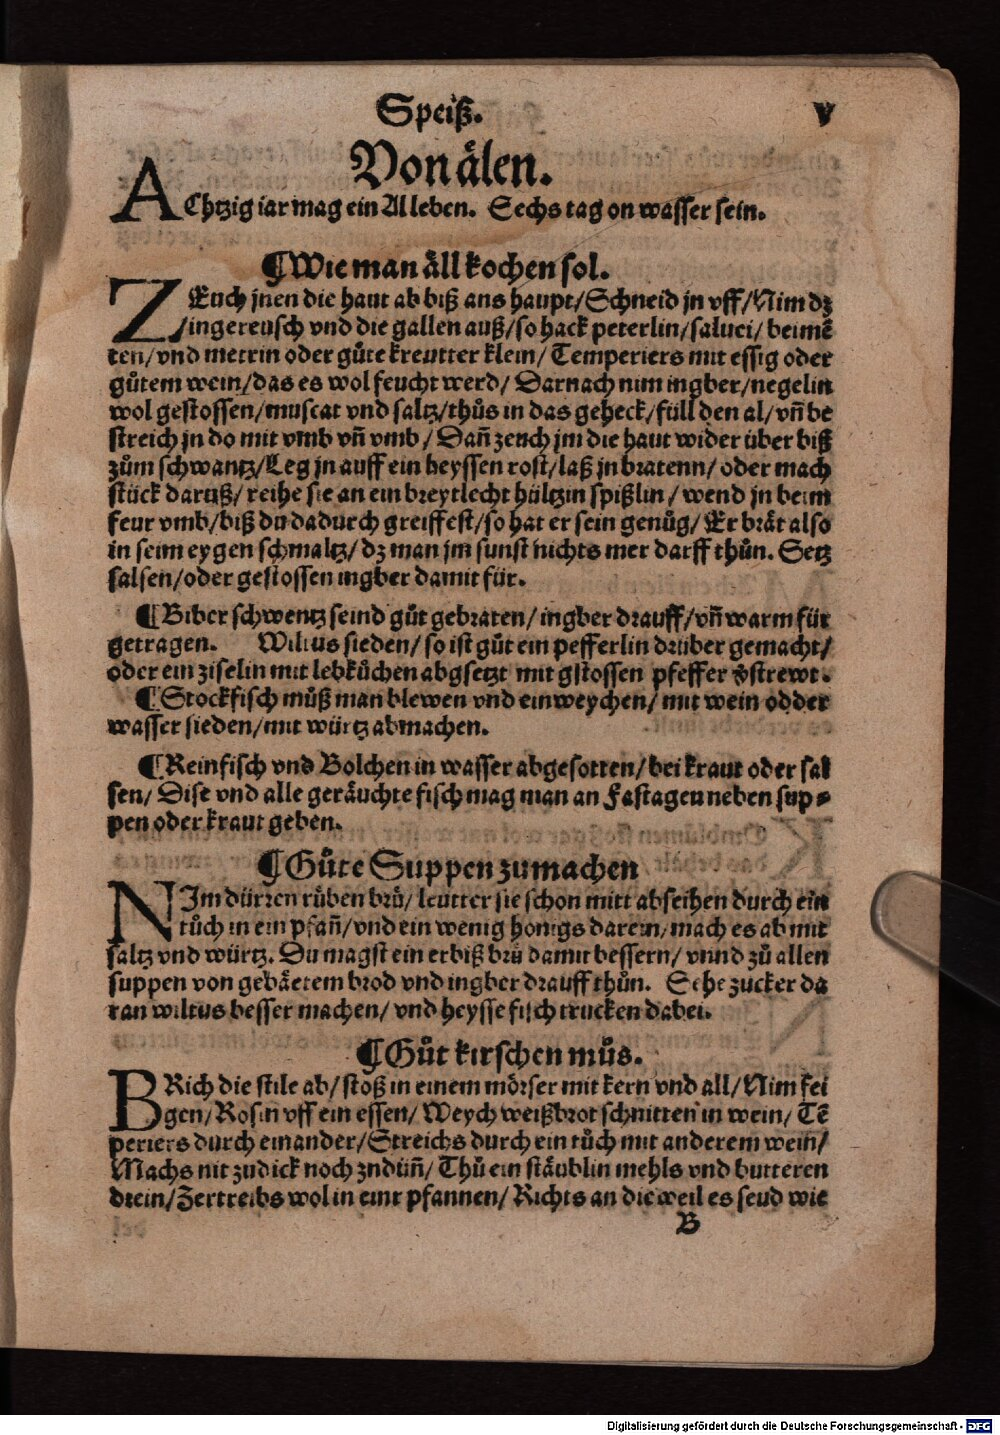 Speiß. v
Von älen.
AChtzig iar mag ein Al leben. Sechs tag on wasser sein.
¶Wie man äll kochen sol.
ZEuch jnen die haut ab biß ans haupt/Schneid jn vff/Nim dz
ingereusch vnd die gallen auß/so hack peterlin/saluci/beimē
ten/vnd metrin oder gůte kreutter klein/Temperiers mit essig oder
gůtem wein/das es wol feucht werd/Darnach nim ingber/negelin
wol gestossen/muscat vnd saltz/thůs in das geheck/füll den al/vñ be
streich jn do mit vmb vñ vmb/Dañ zeuch jm die haut wider über biß
zům schwantz/Leg jn auff ein heyssen rost/laß jn bratenn/oder mach
stück daruß/reihe sie an ein breytlecht hültzin spißlin/wend jn beim
feur vmb/biß du dadurch greiffest/so hat er sein genůg/Er brät also
in seim eygen schmaltz/dz man jm sunst nichts mer darff thůn. Setz
salsen/oder gestossen ingber damit für.
¶Biber schwentz seind gůt gebraten/ingber drauff/vñ warm für
getragen. Wiltus sieden/so ist gůt ein pefferlin drüber gemacht/
oder ein ziselin mit lebkůchen abgsetzt mit gstossen pfeffer vstrewt.
¶Stockfisch můß man blewen vnd einweychen/mit wein odder
wasser sieden/mit würtz abmachen.
¶Reinfisch vnd Bolchen in wasser abgesotten/bei kraut oder sal
sen/Dise vnd alle geräuchte fisch mag man an Fastagen neben sup⸗
pen oder kraut geben.
¶Gůte Suppen zumachen
NIm dürren rüben brü/leutter sie schon mitt abseihen durch ein
tůch in ein pfañ/vnd ein wenig honigs darein/mach es ab mit
saltz vnd würtz. Du magst ein erbiß brü damit bessern/vnnd zů allen
suppen von gebäetem brod vnd ingber drauff thůn. Sehe zucker da
ran wiltus besser machen/vnd heysse fisch trucken dabei.
¶Gůt kirschen můs.
BRich die stile ab/stoß in einem mörser mit kern vnd all/Nim fei
gen/Rosin vff ein essen/Weych weißbrot schnitten in wein/Tē
periers durch einander/Streichs durch ein tůch mit anderem wein/
Machs nit zu dick noch zudüñ/Thů ein stäublin mehls vnd butteren
drein/Zertreibs wol in einr pfannen/Richts an die weil es seud wie
B
Digitalisierung gefördert durch die Deutsche Forschungsgemeinschaft - DFG